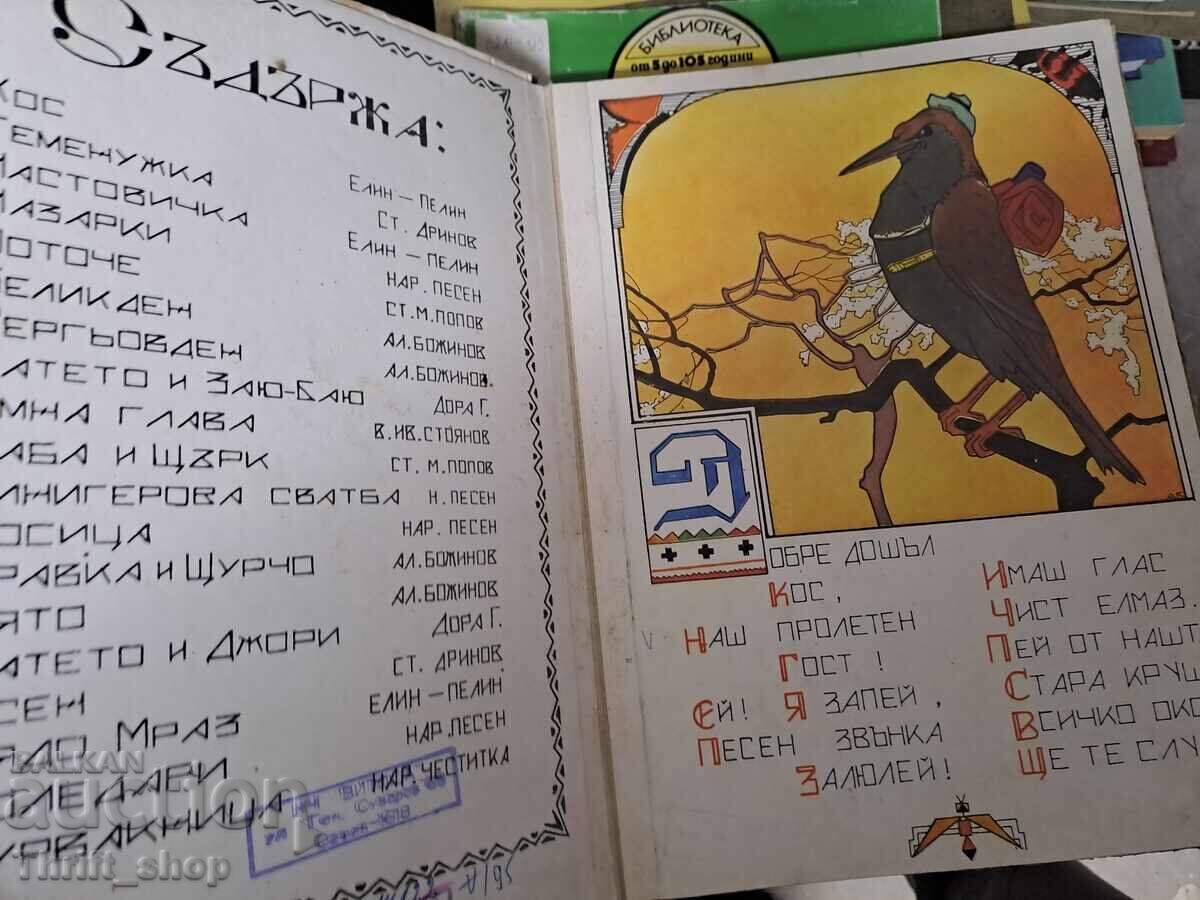 БИБЛИОТЕКА
от 5 до 105 години
СЪДЪРЖА:
КОС ЕЛИН – ПЕЛИН
ТЕМЕНУЖКА СТ. ДРИНОВ
ЛАСТОВИЧКА ЕЛИН – ПЕЛИН
ЛАЗАРКИ НАР. ПЕСЕН
ПОТОЧЕ СТ. М. ПОПОВ
ВЕЛИКДЕН АЛ. БОЖИНОВ
ГЕРГЬОВДЕН АЛ. БОЖИНОВ
АТЕТО И ЗАЮ-БАЮ ДОРА Г.
МНА ГЛАВА В. ИВ. СТОЯНОВ
АБА И ЩЪРК СТ. М. ПОПОВ
ИНИГЕРОВА СВАТБА Н. ПЕСЕН
ОСИЦА НАР. ПЕСЕН
РАВКА И ЩУРЧО АЛ. БОЖИНОВ
ЯТО АЛ. БОЖИНОВ
АТЕТО И ДЖОРИ ДОРА Г.
СЕН СТ. ДРИНОВ
ЯДО МРАЗ ЕЛИН – ПЕЛИН
ЛЕДАРИ НАР. ПЕСЕН
УРВАКНИЦА НАР. ЧЕСТИТКА
Ген. Суворов
V/95
ДОБРЕ ДОШЪЛ
КОС,
НАШ ПРОЛЕТЕН
ГОСТ!
ЕЙ! Я ЗАПЕЙ,
ПЕСЕН ЗВЪНКА
ЗАЛЮЛЕЙ!
ИМАШ ГЛАС
ЧИСТ ЕЛМАЗ.
ПЕЙ ОТ НАШТ
СТАРА КРУШ
ВСИЧКО ОКО
ЩЕ ТЕ СЛУ
BALKAN
auction
Thrift_shop